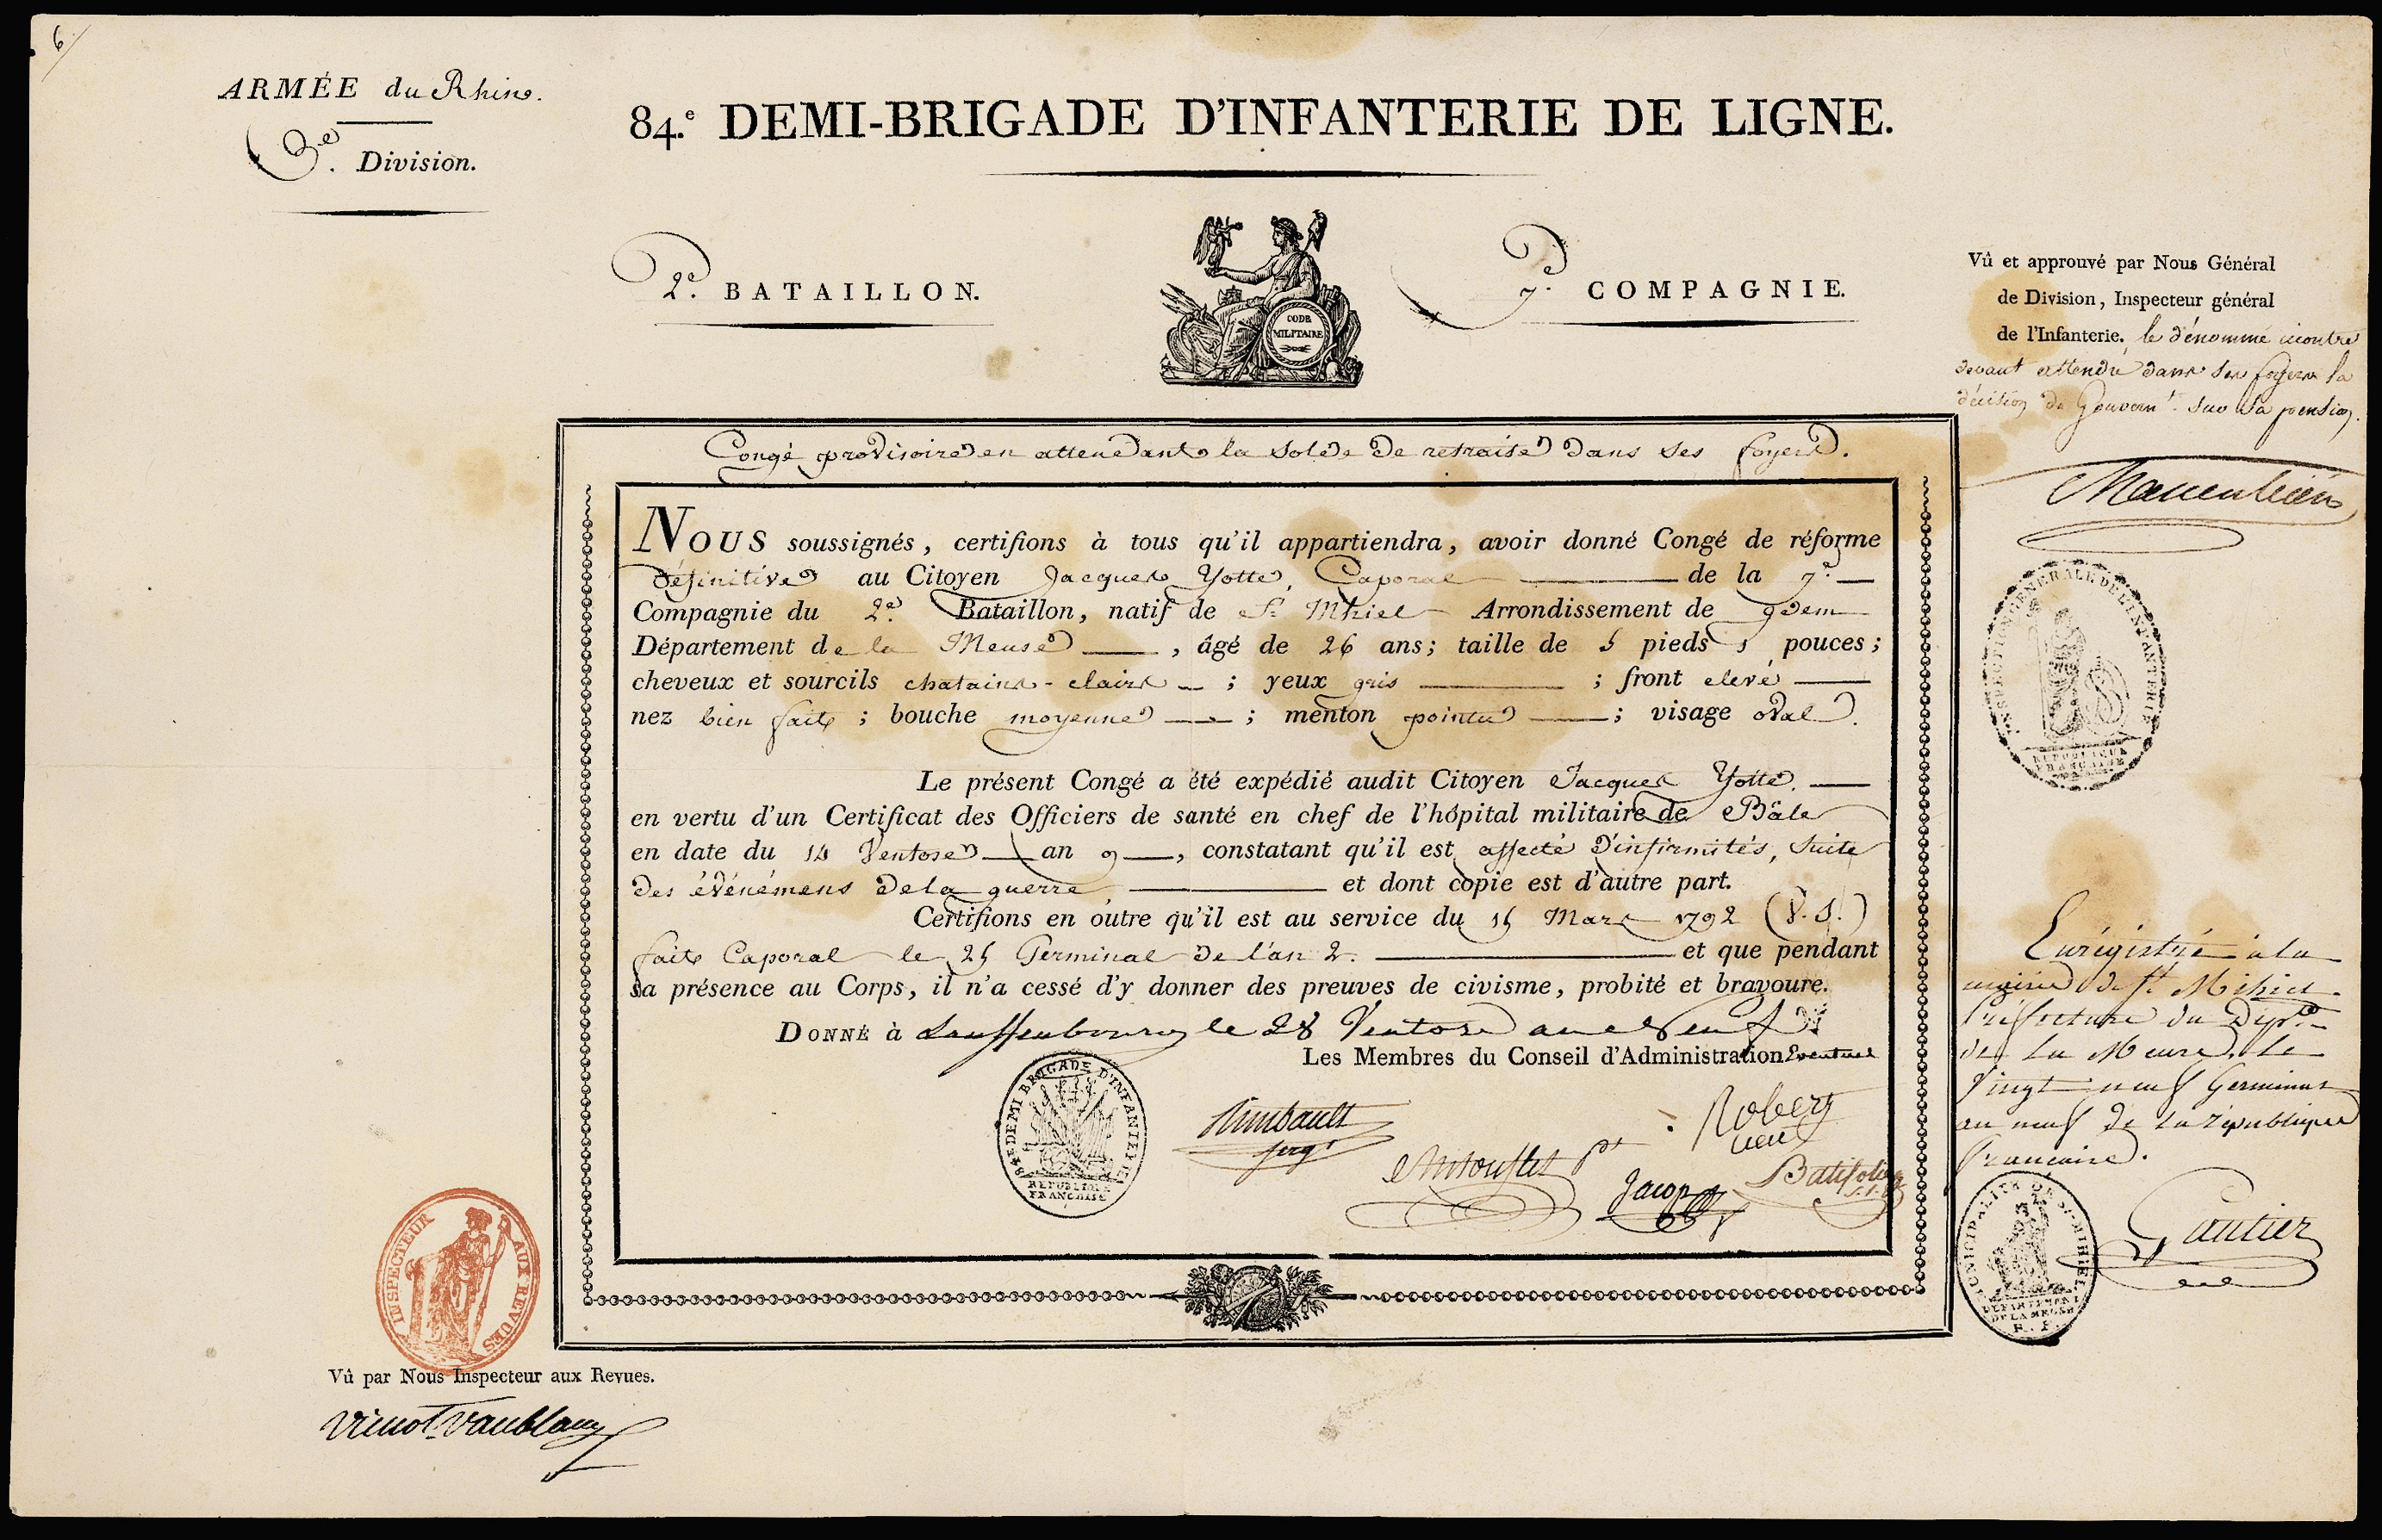 6
ARMÉE du Rhin.
3e. Division.
84.e DEMI-BRIGADE D'INFANTERIE DE LIGNE.
2e. BATAILLON.
CODE
MILITAIRE
7e. COMPAGNIE.
Vû et approuvé par Nous Général
de Division, Inspecteur général
de l'Infanterie. le dénommé
devant attendre dans ses foyers la
décision du Gouvernt. sur sa pension.
Congé provisoire en attendant la solde de retraite dans ses foyers.
NOUS soussignés, certifions à tous qu'il appartiendra, avoir donné Congé de réforme
définitive au Citoyen Jacques Yotte, Caporal de la 7e.
Compagnie du 2e. Bataillon, natif de St. Mhiel Arrondissement de idem
Département de la Meuse, âgé de 26 ans; taille de 5 pieds 1 pouces;
cheveux et sourcils chatains-clairs; yeux gris; front elevé
nez bien fait; bouche moyenne; menton pointu; visage oval.
Le présent Congé a été expédié audit Citoyen Jacques Yotte,
en vertu d'un Certificat des Officiers de santé en chef de l'hôpital militaire de Bâle
en date du 14 Ventose an 9, constatant qu'il est affecté d'infirmités, suite
des événémens de la guerre, et dont copie est d'autre part.
Certifions en outre qu'il est au service du 15 Mars 1792 (V.S.)
fait Caporal le 25 Germinal de l'an 2. et que pendant
sa présence au Corps, il n'a cessé d'y donner des preuves de civisme, probité et bravoure.
DONNÉ à Lauffenbourg le 28 Ventose an neuf
Les Membres du Conseil d'Administration Eventuel
84E DEMI BRIGADE D'INFANTERIE
REPUBLIQUE
FRANCAISE
Rimbault
sergt
Robert
Jacop
Batifolier
INSPECTION GENERALE DE L'INFANTERIE
REPUBLIQUE
FRANÇAISE
Enrégistré à la
mairie de St. Mihiel
Préfecture du Dépt.
de La Meuse, Le
Vingt neuf Germinal
an neuf de La république
francaise.
Gautier
MUNICIPALITE DE ST MIHIEL
DEPARTEMENT
DE LA MEUSE
R. F.
INSPECTEUR AUX REVUES
Vû par Nous Inspecteur aux Revues.
Vienot Vaublanc